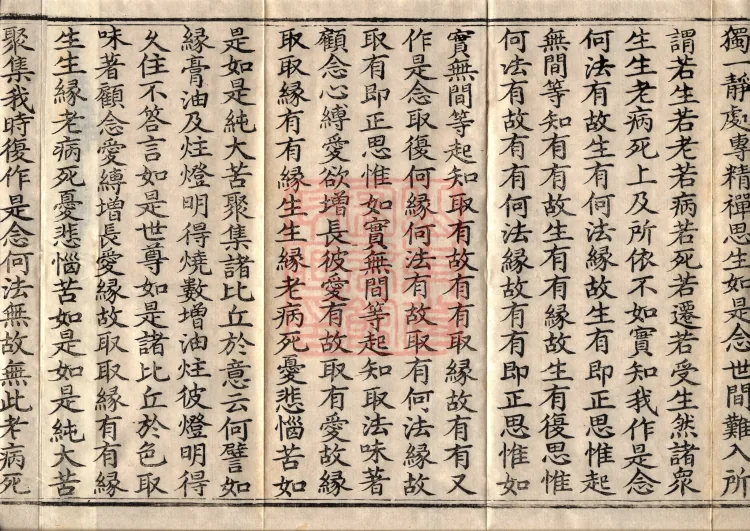 獨一靜處專精禪思生如是念世間難入所
謂若生若老若病若死若遷若受生然諸衆
生生老病死上及所依不如實知我作是念
何法有故生有何法緣故生有即正思惟起
無間等知有有故生有有緣故生有復思惟
何法有故有有何法緣故有有即正思惟如
實無間等起知取有故有有取緣故有有又
作是念取復何緣何法有故取有何法緣故
取有即正思惟如實無間等起知取法味著
顧念心縛愛欲增長彼愛有故取有愛故緣
取取緣有有緣生生緣老病死憂悲惱苦如
是如是純大苦聚集諸比丘於意云何譬如
緣膏油及炷燈明得燒數增油炷彼燈明得
久住不答言如是世尊如是諸比丘於色取
味著顧念愛縛增長愛緣故取取緣有有緣
生生緣老病死憂悲惱苦如是如是純大苦
聚集我時復作是念何法無故無此老病死